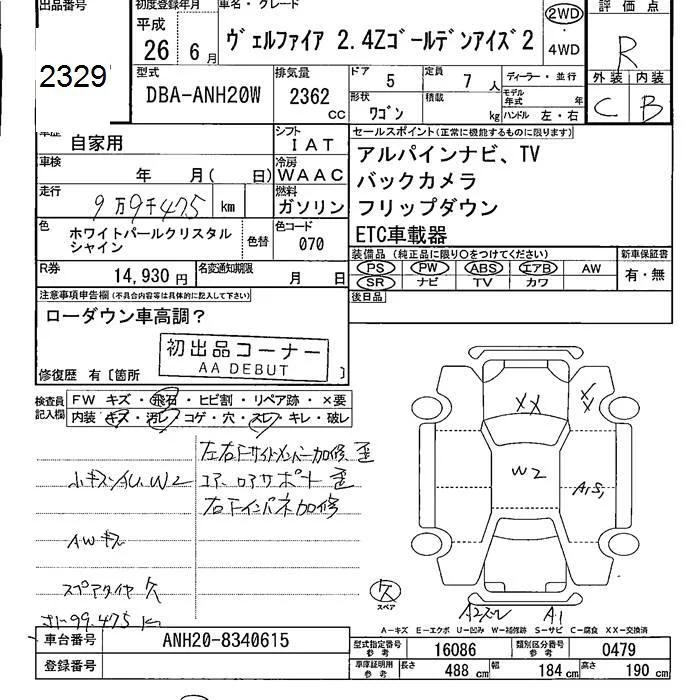 出品番号
2329
初度登録年月
平成
26 6 月
車名・グレード
ヴェルファイア 2.4Zゴールデンアイズ2
2WD
・
4WD
評価点
R
外装 内装
C B
型式
DBA-ANH20W
排気量
2362
CC
ドア
5
定員
7 人
ディーラー・並行
形状
ワゴン
積載
kg
モデル年式
年
ハンドル 左・右
車歴
自家用
シフト
IAT
車検
年 月( 日)
冷房
WAAC
走行
9万9千475 km
燃料
ガソリン
色
ホワイトパールクリスタル
シャイン
色替
色コード
070
R券
14,930 円
名変通知期限
月 日
セールスポイント(正常に機能するものに限ります)
アルパインナビ、TV
バックカメラ
フリップダウン
ETC車載器
装備品 (純正品に限り○をつけてください)
新車保証書
PS PW ABS エアB AW
SR ナビ TV カワ
有・無
後日品
注意事項申告欄(不具合内容等は具体的に記入して下さい)
ローダウン車高調?
初出品コーナー
AA DEBUT
修復歴 有〔箇所 〕
検査員
記入欄
FW キズ・飛石・ヒビ割・リペア跡・×要
内装 キズ・汚レ・コゲ・穴・スレ・キレ・破レ
左右Fサイドメンバー加修 歪
W2
コアーロアサポート 歪
右Fインパネ加修
AWキズ
スペアタイヤ欠
99.475
XX
XX
W2
A1S1
欠
スペア
A1
A−キズ E−エクボ U−凹み W−補修跡 S−サビ C−腐食 XX−交換済
車台番号
ANH20-8340615
登録番号
型式指定番号
参考
16086
類別区分番号
参考
0479
車庫証明用
参考
長さ
488 cm
幅
184 cm
高さ
190 cm